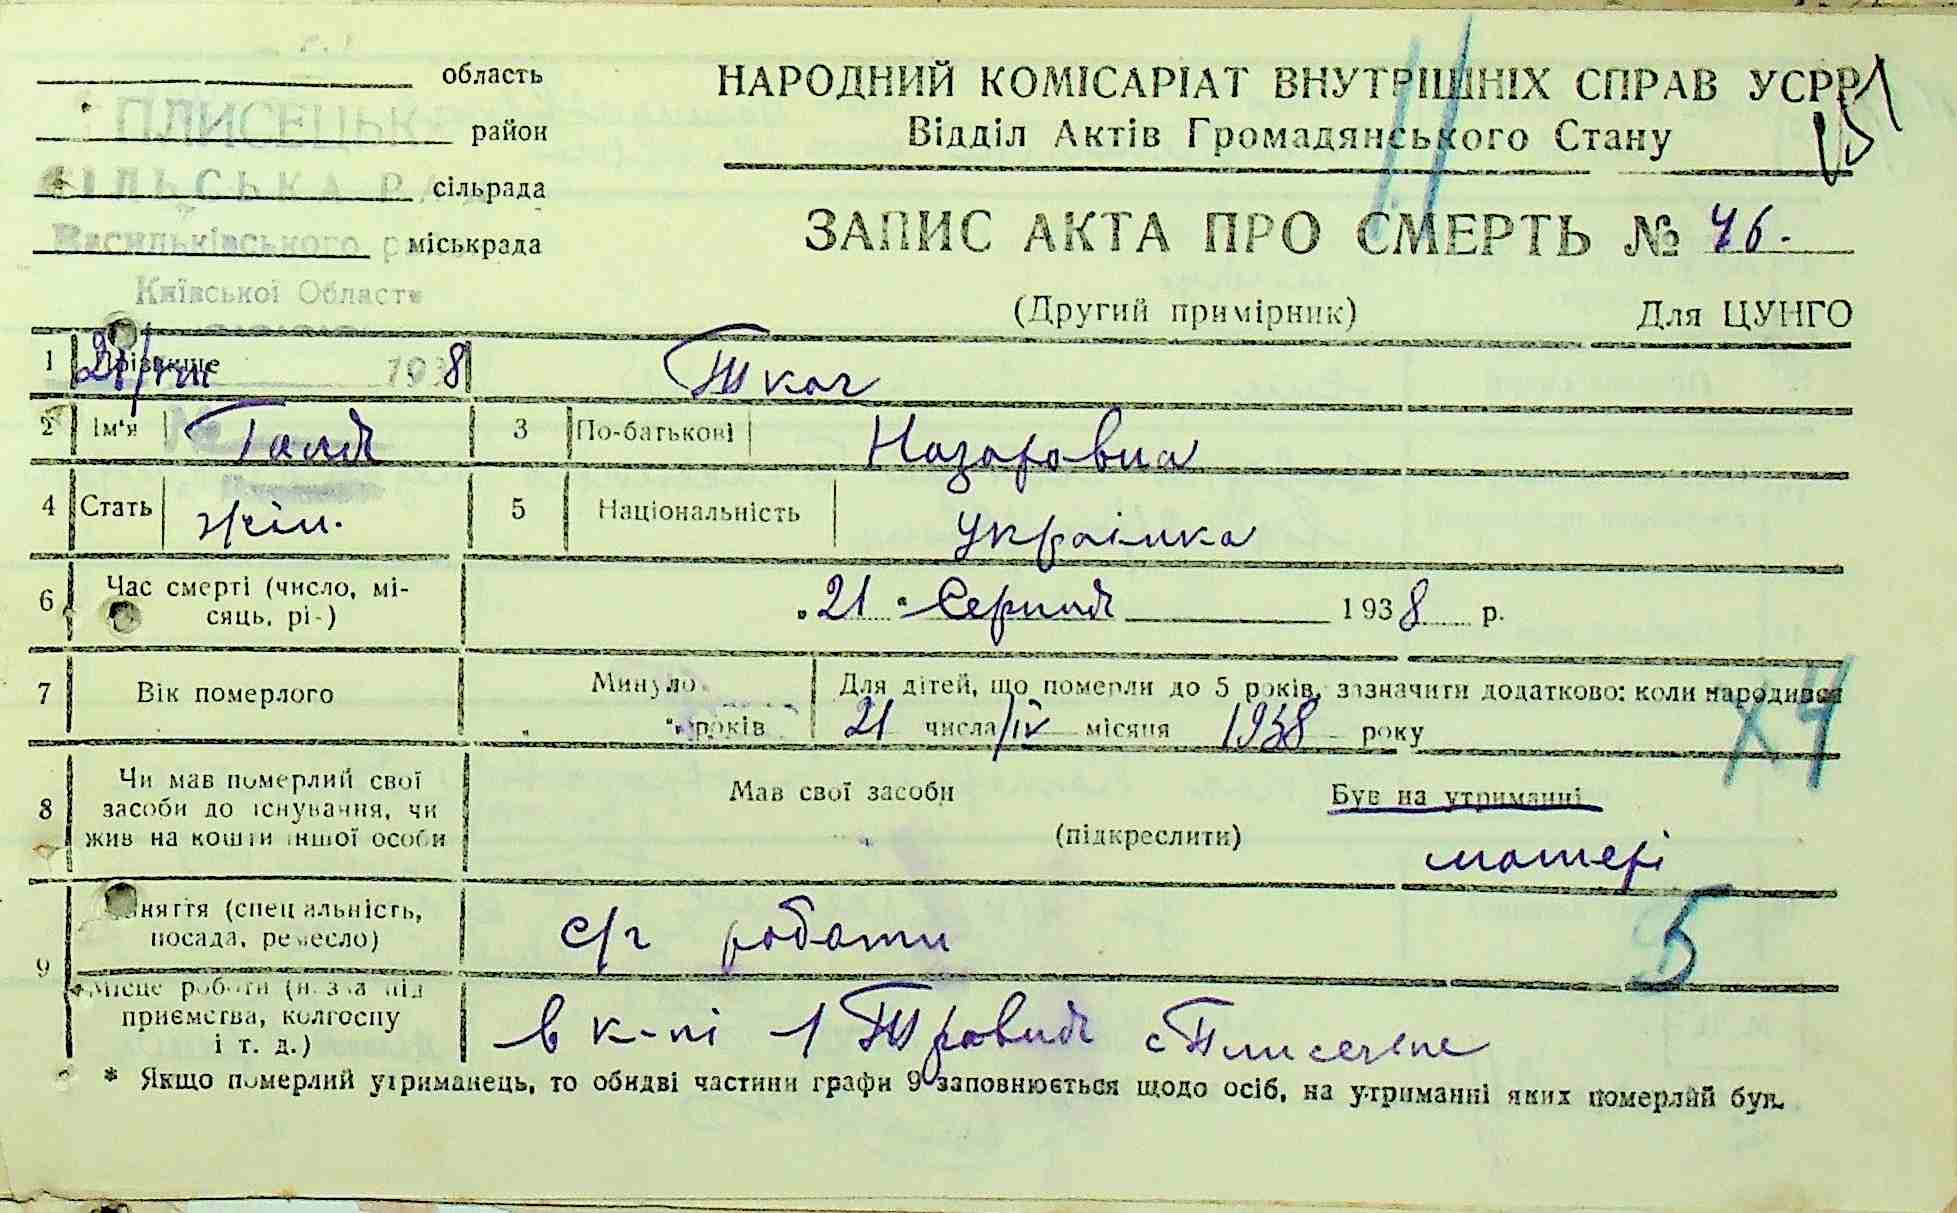 область
район
сільрада
міськрада
ПЛИСЕЦЬКА
СІЛЬСЬКА РАДА
Васильківського району
Київської Области
НАРОДНИЙ КОМІСАРІАТ ВНУТРІШНІХ СПРАВ УСРР
Відділ Актів Громадянського Стану
ЗАПИС АКТА ПРО СМЕРТЬ № 46.
(Другий примірник) Для ЦУНГО
1 Прізвище 21/VIII 1938 Ткач
2 Ім'я Галя 3 По-батькові Назаровна
4 Стать жін. 5 Національність українка
6 Час смерті (число, мі-
сяць, рік) "21" Серпня 1938 р.
7 Вік померлого Минуло років Для дітей, що померли до 5 років, зазначити додатково: коли народився
21 числа/IV місяця 1938 року
х4
8 Чи мав померлий свої
засоби до існування, чи
жив на кошти іншої особи
Мав свої засоби Був на утриманні
(підкреслити)
матері
9 Заняття (спеціальність,
посада, ремесло) с/г роботи
5
Місце роботи (назва під
приємства, колгоспу
і т. д.) в к-пі 1 Травня с Плисецьке
* Якщо померлий утриманець, то обидві частини графи 9 заповнюється щодо осіб, на утриманні яких померлий був.